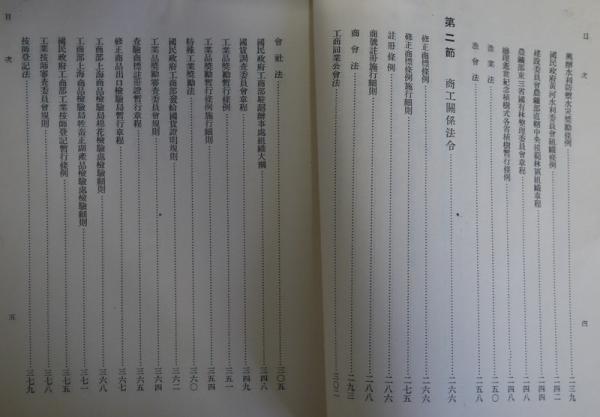 目次
興辦水利防禦水災獎勵條例……二三九
國民政府黃河水利委員會組織條例……二四二
建設委員會農礦部直轄中央模範林區組織章程……二四四
農礦部東三省國有林整理委員會章程……二四八
總理逝世紀念植樹式各省植樹暫行條例……二四九
漁業法……二五一
漁會法……二五九
第二節 商工關係法令……二六六
修正商標條例……二六六
修正商標條例施行細則……二七五
註冊條例……二八六
商號註冊施行細則……二八八
商會法……二九三
工商同業公會法……三〇二
四
會社法……三〇五
國民政府工商部駐滬辦事處組織大綱……三四八
國貨調查委員會章程……三四九
工業品獎勵暫行條例……三五一
工業品獎勵暫行條例施行細則……三五四
特種工業獎勵法……三六〇
國民政府工商部發給國貨證明規則……三六二
工業品獎勵審查委員會規則……三六四
查驗商標註冊證暫行章程……三六五
修正商品出口檢驗局暫行章程……三六七
工商部上海商品檢驗局棉花檢驗處檢驗細則……三六八
工商部上海商品檢驗局牲畜正副產品檢驗處檢驗細則……三七一
國民政府工商部工業技師登記暫行條例……三七五
工業技師審查委員會規則……三七八
技師登記法……三七九
目次
五